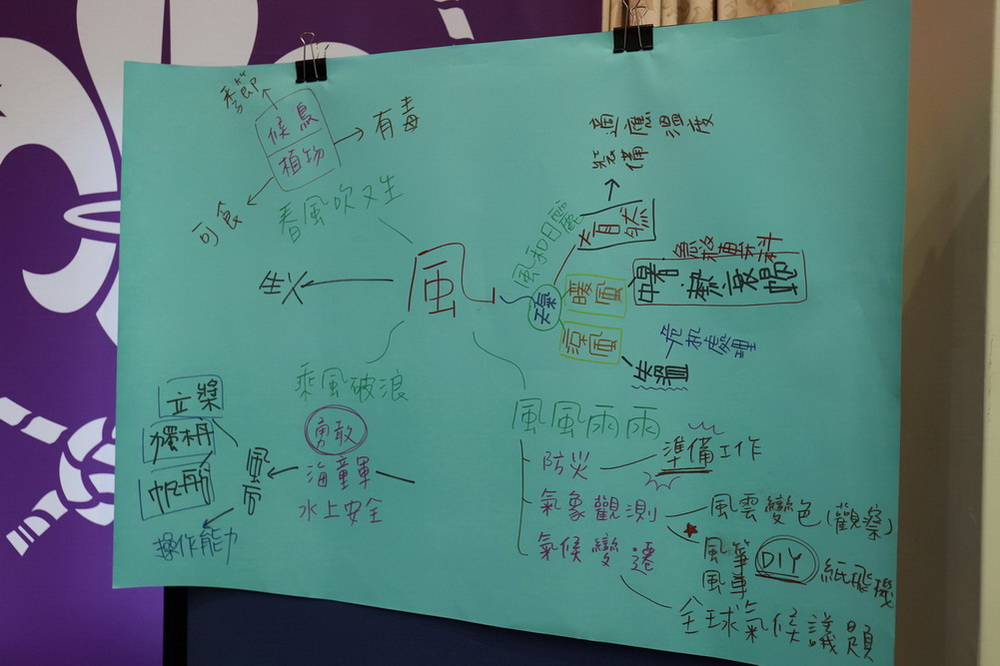 季節
候鳥
植物
有毒
可食
春風吹又生
風
生火
適應溫度
裝備
大自然
風和日麗
天氣
急救專科
中暑.熱衰竭
暖風
涼風
危機處理
失溫
乘風破浪
勇敢
海童軍
水上安全
風帆
立槳
獨木舟
帆船
操作能力
風風雨雨
防災
準備工作
氣象觀測
風雲變色(觀察)
風箏
風車
DIY
紙飛機
氣候變遷
全球氣候議題